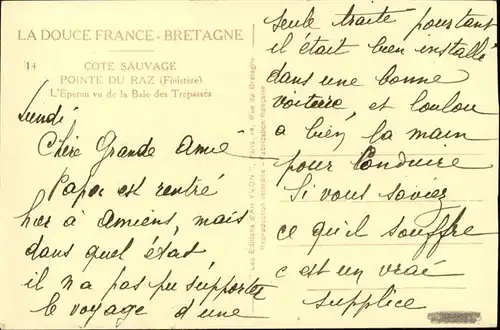 LA DOUCE FRANCE - BRETAGNE
14
COTE SAUVAGE
POINTE DU RAZ (Finistère)
L'Eperon vu de la Baie des Trépassés
Lundi
Chère Grande Amie
Papa est rentré
hier à Amiens, mais
dans quel état
il n'a pas pu supporter
le voyage d'une
Les Editions d'Art "YVON", Paris, Rue de Bretagne
Reproduction interdite - Fabrication française
seule traite pourtant
il était bien installé
dans une bonne
voiture, et loulou
a bien la main
pour Conduire
Si vous saviez
ce qu'il souffre
c'est un vrai
supplice